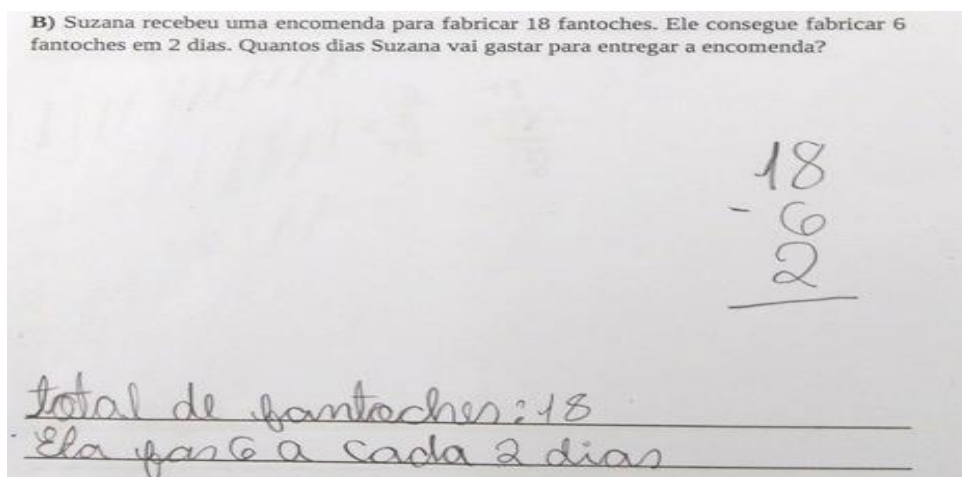 B) Suzana recebeu uma encomenda para fabricar 18 fantoches. Ele consegue fabricar 6
fantoches em 2 dias. Quantos dias Suzana vai gastar para entregar a encomenda?
18
- 6
2
total de fantoches: 18
Ela fas 6 a cada 2 dias